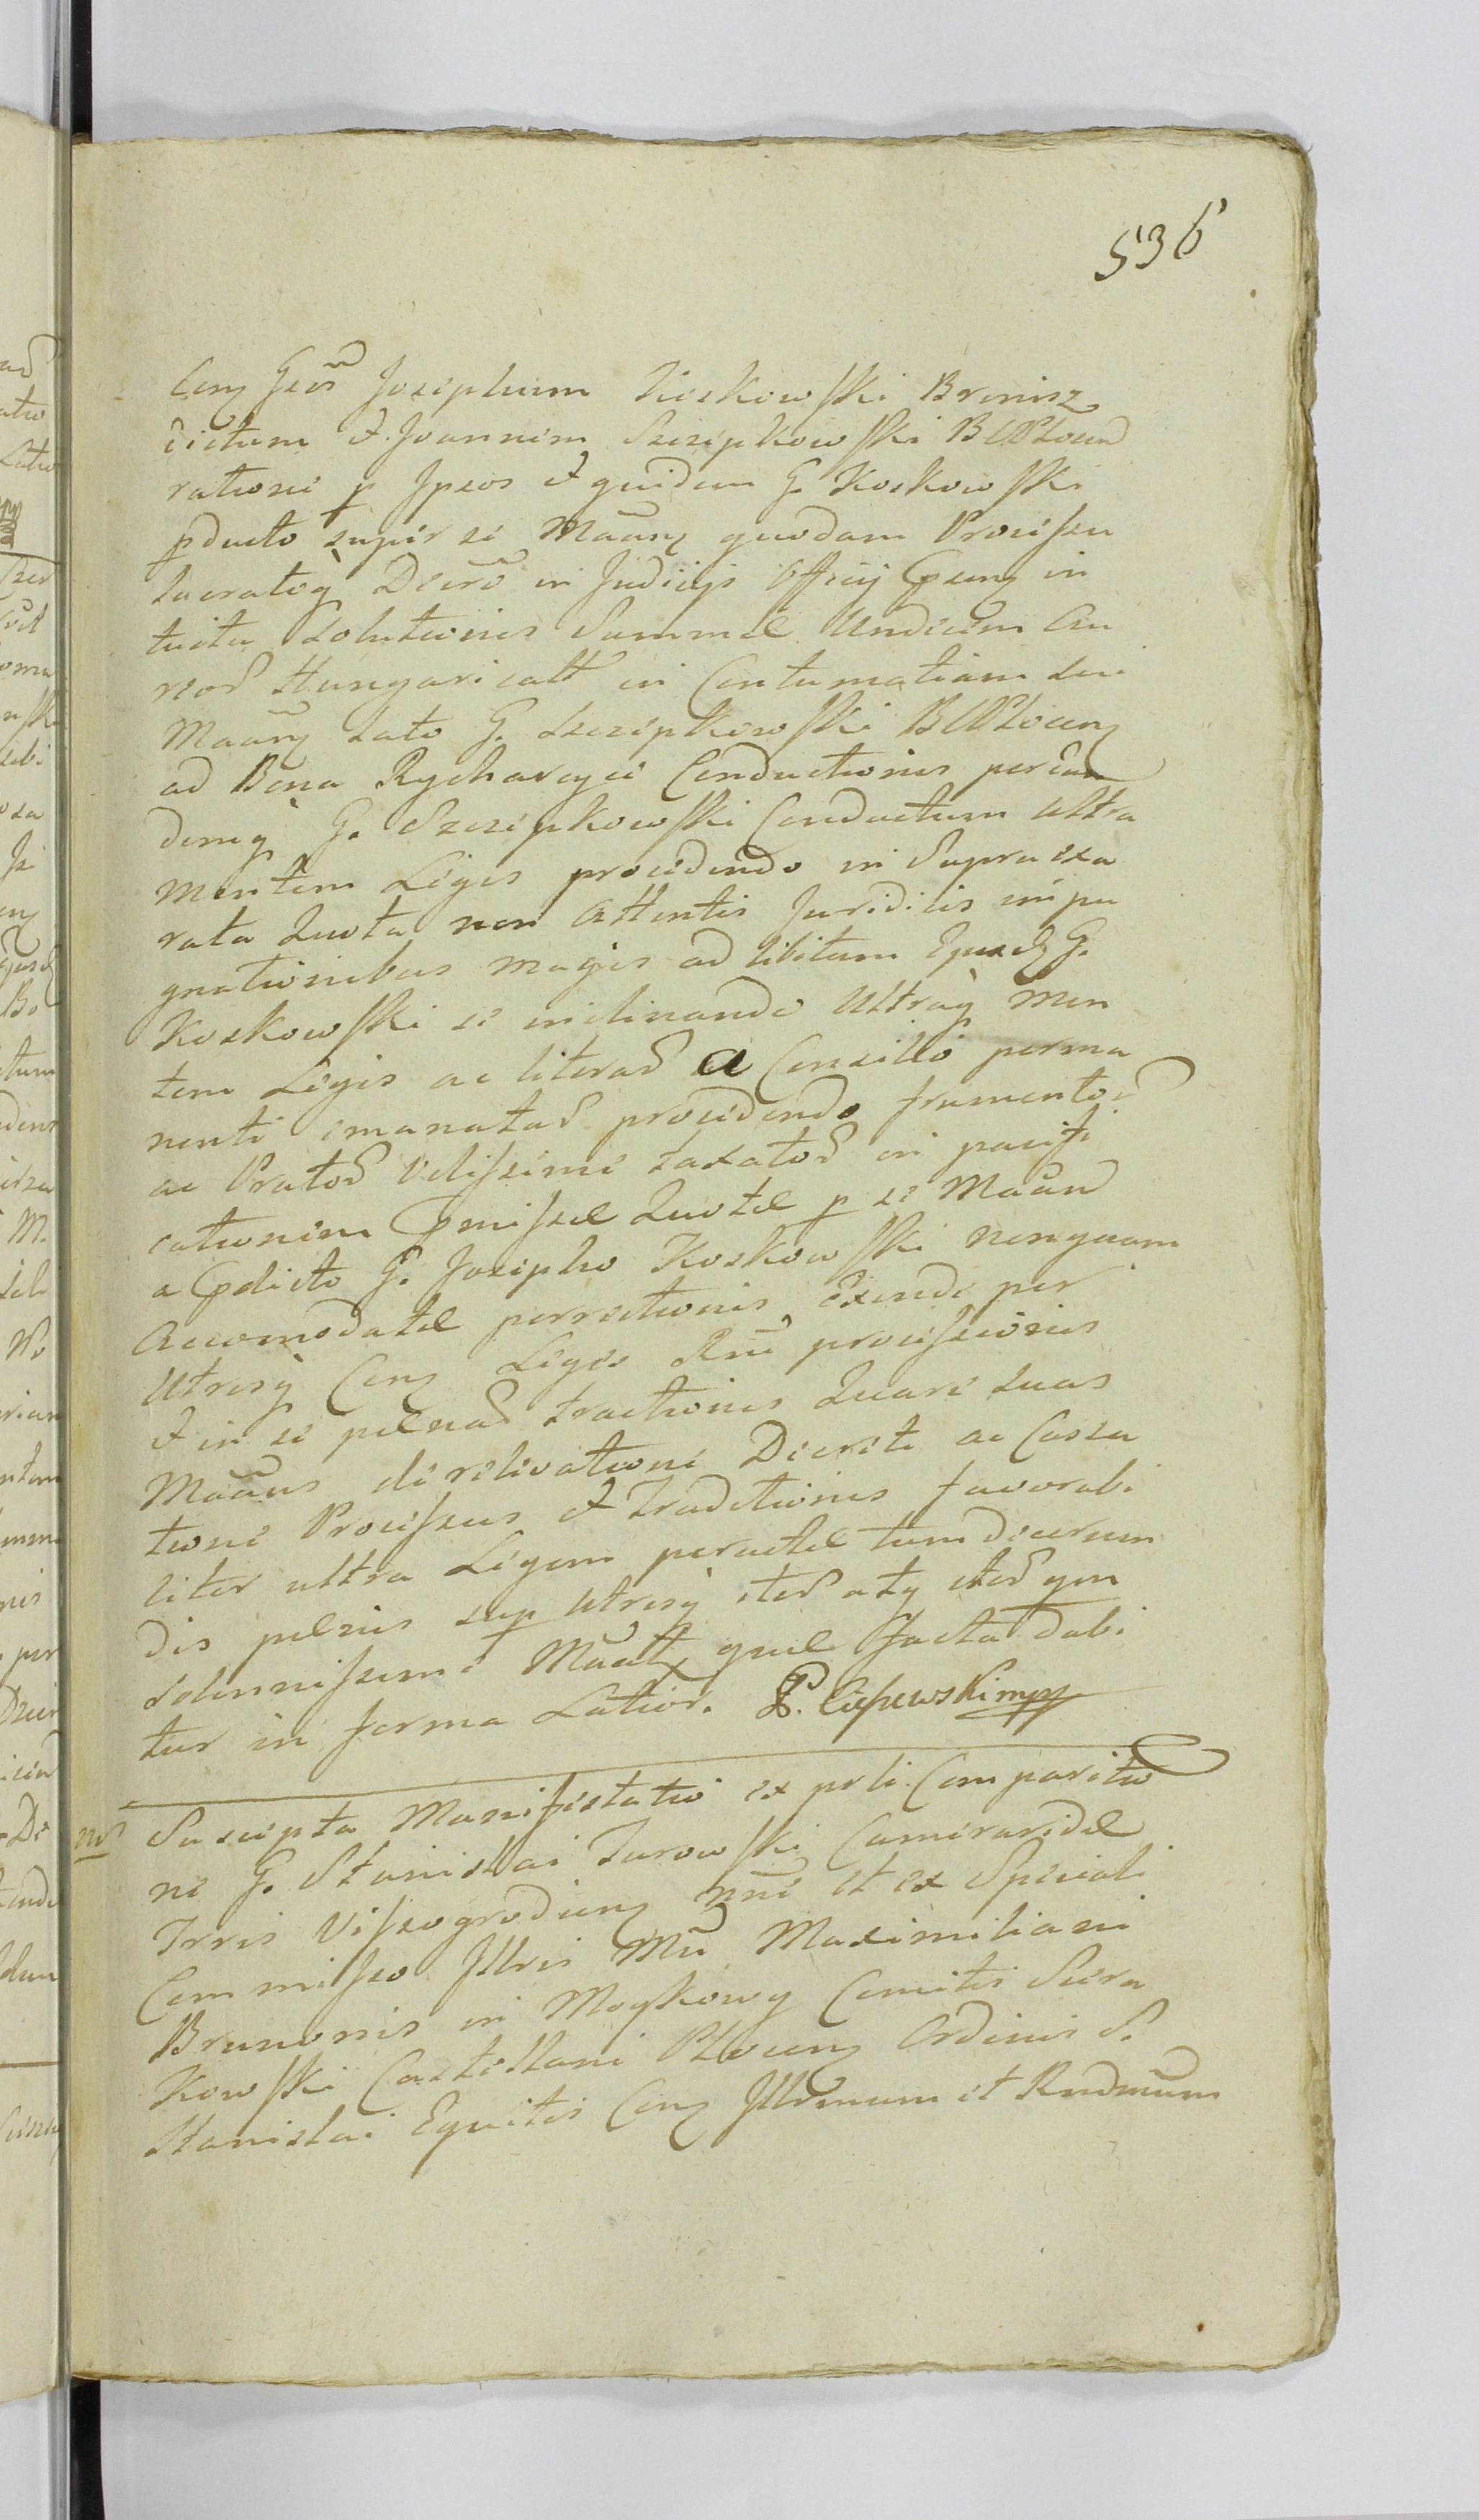 536
Cong Gsos Josephum Koskowski Bronisz
dictum et Joannem Szczepkowski BCPlocen
ratione p Ipsos et quidem G. Koskowski
pducto super se Maang quodam Processu
lucratoq Decro in Judicijs Officij psenq in
tuitu Solutionis Summæ Undecim Au
reor Hungaricalt in Contumatiam sui
Maang lato G. Szczepkowski BCPlocenq
ad Bona Rycharcyce Conductionis per eun
demq G. Szczepkowski Conductum Ultra
Mentem Legis procedendo in Supra exa
rata Quota non Attentis Juridicis impu
gnationibus magis ad libitum Ejusd G.
Koskowski se inclinando Ultraq Men
tem Legis ac literas a Consilio perma
nenti emanatas procedendo frumentor
ac Prator Vilissime taxator in pacifi
cationem pmissæ Quotæ p se Maan
a pdicto G. Josepho Koskowski nonquam
Accomodatæ perrectionis exinde per
Utrosq Conq Leges Rni processionis
et in se pænas tractionis Quare suas
Maans de relevatione Decreti ac Cassa
tione Processus et Traditionis favorabi
liter ultra Legem peractæ tum decernen
dis pænis sup Utrosq iter atq iter qm
solennissime Maat quæ facta dabi
tur in forma Latior.
nos Suscepta Manifestatio ex psli Comparitio
ne G. Stanislai Turowski Cameraridæ
Trris Vissogrodienq nne et ex Speciali
Commisso Illris Mn Maximiliani
Brunonis in Moykowy Comitis Siera
kowski Castellani Plocenq Ordinis S.
Stanislai Equitis Conq Illrmum et Rndmum